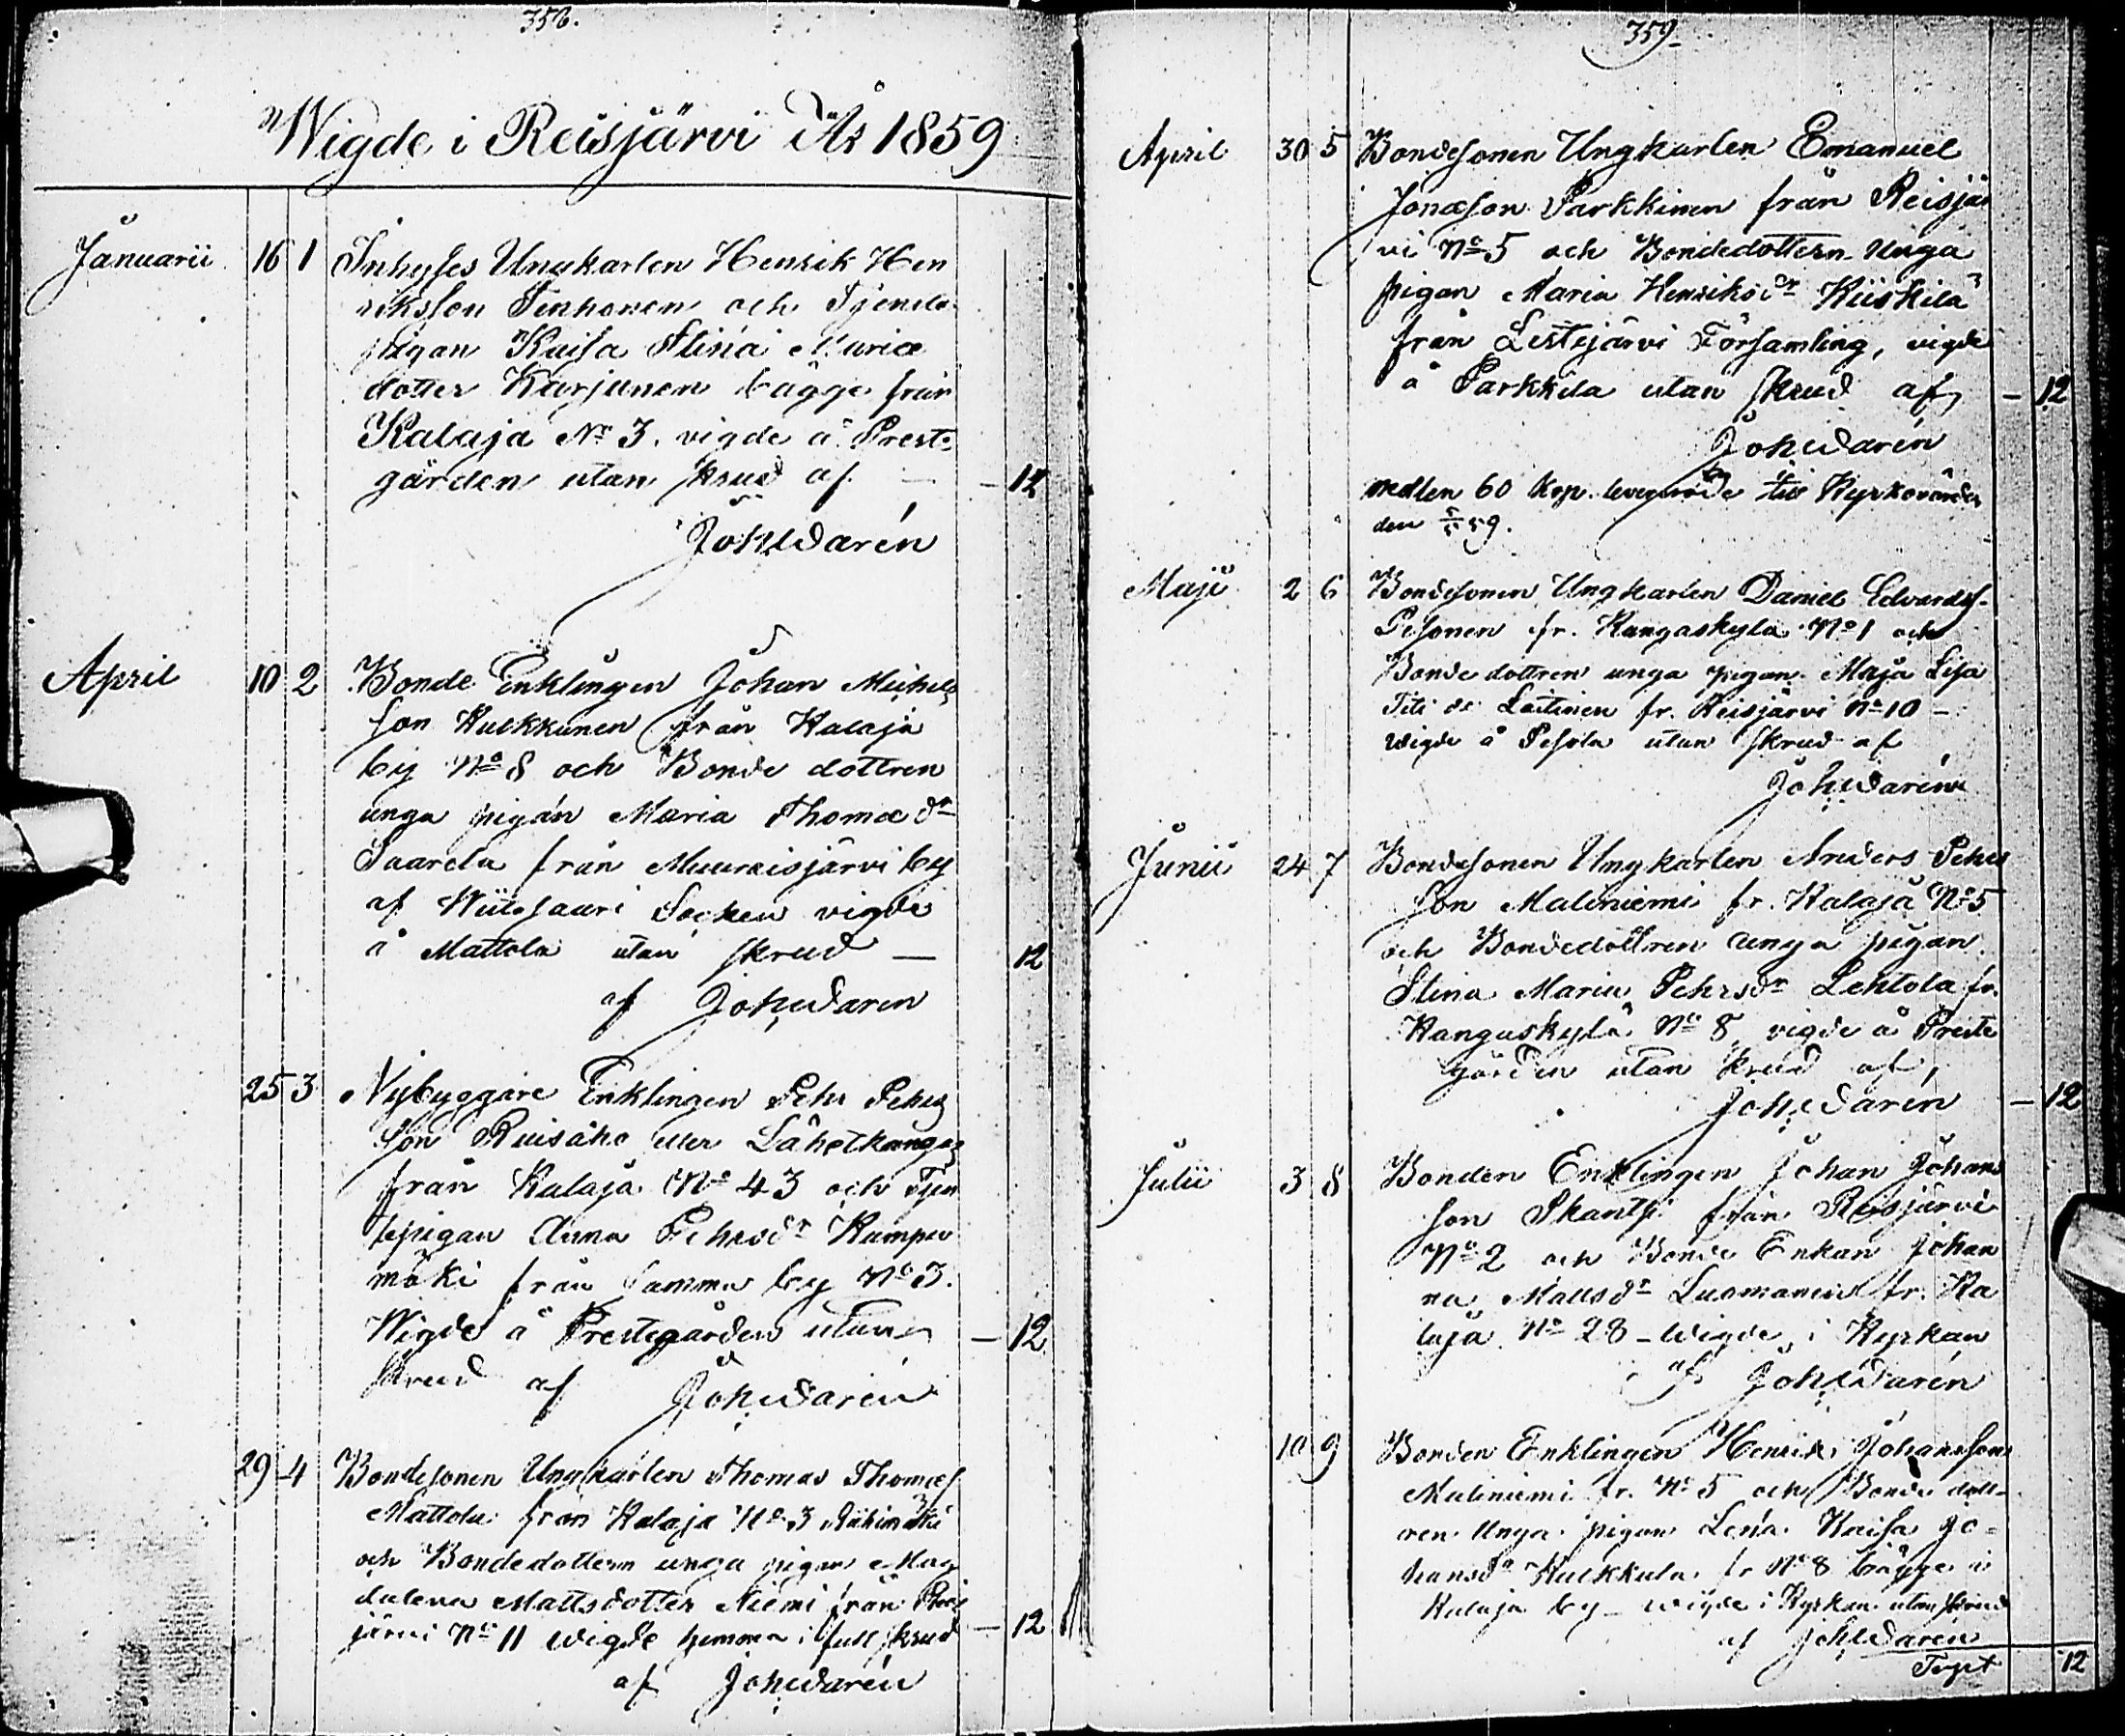 358.
Wigde i Reisjärvi År 1859
Januarii 16 1 Inhyses Ungkarlen Henrik Hen
riksson Tenhonen och Tjenste
pigan Kaisa Stina Mariæ
dotter Karjunen bägge från
Kalaja No 3. vigde å Preste
gården utan skrud af — 12
Joh Widarén
April 10 2 Bonde Enklingen Johan Michels
son Hulkkunen från Kalaja
by No 8 och Bonde dottren
unga pigan Maria Thomæ dr
Saarela från Muurasjärvi by
af Wiitasaari Socken vigde
å Mattola utan skrud — 12
af Joh Widarén
25 3 Nybyggare Enklingen Pehr Pehrs
son Ruisaho eller Lähetkangas
från Kalaja No 43 och Tjen
stepigan Anna Pehrsdr Kumpu
mäki från samma by No 3.
Wigde å Prestegården utan — 12
skrud af Joh Widarén
29 4 Bondesonen Ungkarlen Thomas Thomæs.
Mattola från Kalaja No 3 Riihimäki
och Bondedottern unga pigan Mag
dalena Mattsdotter Niemi från Reis
järvi No 11 wigde hemma i full skrud — 12
af Joh Widarén
359
April 30 5 Bondesonen Ungkarlen Emanuel
Jonæson Parkkinen från Reisjär
vi No 5 och Bondedottern Unga
pigan Maria Henriksdr Kiiskilä
från Lestijärvi Församling, vigde
å Parkkila utan skrud af — 12
Joh Widarén
medlen 60 kop. levererade till Kyrkovärden
den 59.
Maji 2 6 Bondesonen Ungkarlen Daniel Edvardss.
Pesonen fr. Kangaskylä No 1 och
Bonde dottren unga pigan Maja Lisa
Laitinen fr. Reisjärvi No 10 —
Wigde å Pesola utan skrud af
Joh Widarén
Junii 24 7 Bondesonen Ungkarlen Anders Pehrs
son Maliniemi fr. Kalaja No 5
och Bondedottren unga pigan
Stina Maria Pehrsdr Lehtola fr.
Kangaskylä No 8 vigde å Preste
gården utan skrud af,
Joh Widarén — 12
Julii 3 8 Bonden Enklingen Johan Johans
son Skantsi från Reisjärvi
No 2 och Bonde Enkan Johan
na Mattsdr Luomanen fr. Ka
laja No 28 — Wigde i Kyrkan
af Joh Widarén
10 9 Bonden Enklingen Henrik Johansson
Maliniemi fr. No 5 och Bonde dott-
ren Unga pigan Lena Kaisa Jo=
hansdr Hulkkula fr No 8 bägge i
Kalaja by — wigde i Kyrkan utan skrud
af Joh Widarén
Trspt 12